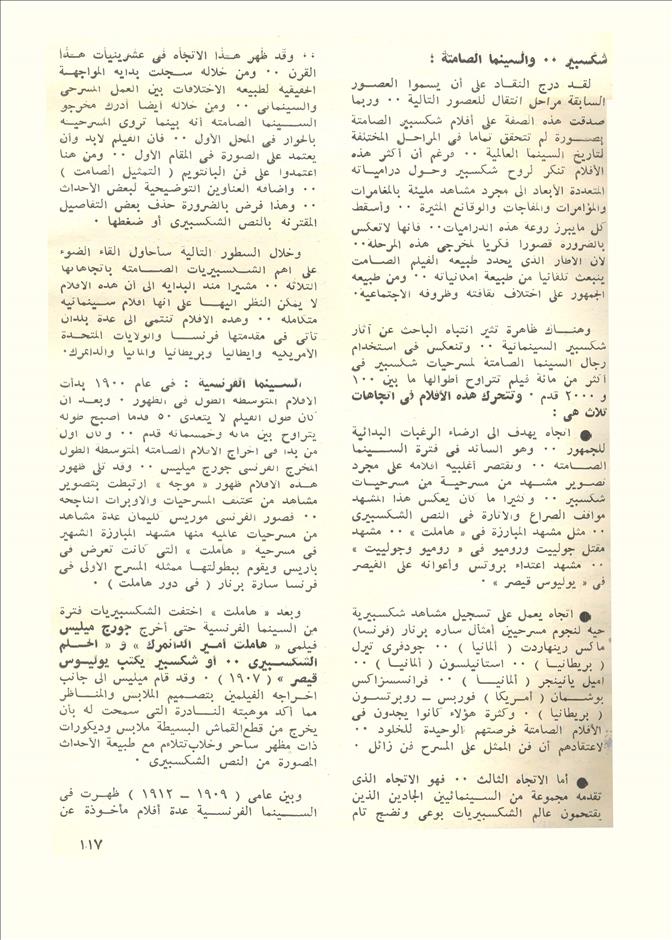 شكسبير ٠٠ والسينما الصامتة :
لقد درج النقاد على أن يسموا العصور
السابقة مراحل انتقال للعصور التالية ٠٠ وربما
صدقت هذه الصفة على أفلام شكسبير الصامتة
بصورة لم تتحقق تماما فى المراحل المختلفة
لتاريخ السينما العالمية ٠٠ فرغم أن أكثر هذه
الأفلام تنكر لروح شكسبير وحول درامياته
المتعددة الأبعاد الى مجرد مشاهد مليئة بالمغامرات
والمؤامرات والمفاجآت والوقائع المثيرة ٠٠ وأسقط
كل مايبرز روعة هذه الدراميات ٠٠ فانها لاتعكس
بالضرورة قصورا فكريا لمخرجى هذه المرحلة ٠٠
لأن الاطار الذى يحدد طبيعة الفيلم الصامت
ينبعث تلقائيا من طبيعة امكانياته ٠٠ ومن طبيعة
الجمهور على اختلاف ثقافته وظروفه الاجتماعية ٠
وهناك ظاهرة تثير انتباه الباحث عن آثار
شكسبير السينمائية ٠٠ وتنعكس فى استخدام
رجال السينما الصامتة لمسرحيات شكسبير فى
أكثر من مائة فيلم تتراوح أطوالها ما بين ١٠٠
و ٢٠٠٠ قدم ٠ وتتحرك هذه الأفلام فى اتجاهات
ثلاث هى :
● اتجاه يهدف الى ارضاء الرغبات البدائية
للجمهور ٠٠ وهو السائد فى فترة السينما
الصامتة ٠٠ وتقتصر أغلبية أفلامه على مجرد
تصوير مشهد من مسرحية من مسرحيات
شكسبير ٠٠ وكثيرا ما كان يعكس هذا المشهد
مواقف الصراع والاثارة فى النص الشكسبيرى
٠٠ مثل مشهد المبارزة فى « هاملت » ٠٠ مشهد
مقتل جولييت وروميو فى « روميو وجولييت »
٠٠ مشهد اعتداء بروتس وأعوانه على القيصر
فى « يوليوس قيصر » ٠
● اتجاه يعمل على تسجيل مشاهد شكسبيرية
حية لنجوم مسرحيين أمثال ساره برنار (فرنسا)
ماكس رينهاردت ( ألمانيا ) ٠٠ جودفرى تيرل
( بريطانيا ) ٠٠ استانيلسون ( ألمانيا ) ٠٠
اميل يانينجر ( ألمانيا ) ٠٠ فرانسسزاكس
بوشمان ( أمريكا ) فوربس ــ روبرتسون
( بريطانيا ) ٠ وكثرة هؤلاء كانوا يجدون فى
الأفلام الصامتة فرصتهم الوحيدة للخلود ٠٠
لاعتقادهم أن فن الممثل على المسرح فن زائل ٠
● أما الاتجاه الثالث ٠٠ فهو الاتجاه الذى
تقدمه مجموعة من السينمائيين الجادين الذين
يقتحمون عالم الشكسبيريات بوعى ونضج تام
٠٠ وقد ظهر هذا الاتجاه فى عشرينيات هذا
القرن ٠٠ ومن خلاله سجلت بداية المواجهة
الحقيقية لطبيعة الاختلافات بين العمل المسرحى
والسينمائى ٠٠ ومن خلاله أيضا أدرك مخرجو
السينما الصامته أنه بينما تروى المسرحية
بالحوار فى المحل الأول ٠٠ فان الفيلم لابد وأن
يعتمد على الصورة فى المقام الأول ٠٠ ومن هنا
اعتمدوا على فن البانتويم ( التمثيل الصامت )
٠٠ واضافة العناوين التوضيحية لبعض الأحداث
٠٠ وهذا فرض بالضرورة حذف بعض التفاصيل
المقترنة بالنص الشكسبيرى أو ضغطها ٠
وخلال السطور التالية سأحاول القاء الضوء
على أهم الشكسبيريات الصامتة باتجاهاتها
الثلاثة ٠٠ مشيرا منذ البداية الى أن هذه الافلام
لا يمكن النظر اليها على أنها أفلام سينمائية
متكاملة ٠٠ وهذه الأفلام تنتمى الى عدة بلدان
تأتى فى مقدمتها فرنسا والولايات المتحدة
الأمريكية وايطاليا وبريطانيا وألمانيا والدانمرك ٠
السينما الفرنسية : فى عام ١٩٠٠ بدأت
الأفلام المتوسطة الطول فى الظهور ٠ وبعد أن
كان طول الفيلم لا يتعدى ٥٠ قدما أصبح طوله
يتراوح بين مائة وخمسمائة قدم ٠٠ وكان أول
من بدأ فى اخراج الأفلام الصامتة المتوسطة الطول
المخرج الفرنسى جورج ميليس ٠٠ وقد تلى ظهور
هذه الأفلام ظهور « موجة » ارتبطت بتصوير
مشاهد من مختلف المسرحيات والأوبرات الناجحة
٠٠ فصور الفرنسى موريس كليمان عدة مشاهد
من مسرحيات عالمية منها مشهد المبارزة الشهير
فى مسرحية « هاملت » التى كانت تعرض فى
باريس ويقوم ببطولتها ممثلة المسرح الأولى فى
فرنسا سارة برنار ( فى دور هاملت ) ٠
وبعد « هاملت » اختفت الشكسبيريات فترة
من السينما الفرنسية حتى أخرج جورج ميليس
فيلمى « هاملت أمير الدانمرك » و « الحلم
الشكسبيرى ٠٠ أو شكسبير يكتب يوليوس
قيصر » ( ١٩٠٧ ) ٠ وقد قام ميليس الى جانب
اخراجه الفيلمين بتصميم الملابس والمناظر
مما أكد موهبته النادرة التى سمحت له بأن
يخرج من قطع القماش البسيطة ملابس وديكورات
ذات مظهر ساحر وخلاب تتلاءم مع طبيعة الأحداث
المصورة من النص الشكسبيرى ٠
وبين عامى ( ١٩٠٩ ــ ١٩١٢ ) ظهرت فى
السينما الفرنسية عدة أفلام مأخوذة عن
١١٧